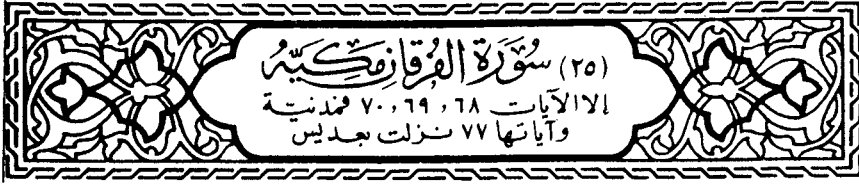 (٢٥) سُورَة الفُرقان مَكيَّة
إلا الآيات ٦٨ ، ٦٩ ، ٧٠ فمدنية
وآياتها ٧٧ نزلت بعد يس